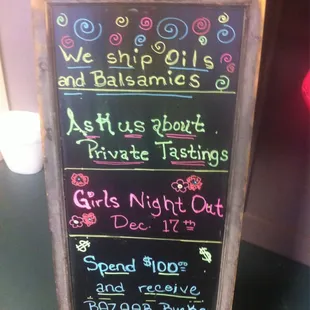 We ship Oils
and Balsamics
Ask us about
Private Tastings
Girls Night Out
Dec. 17th
$ $
Spend $100.00
and receive
BAZAAR Bucks